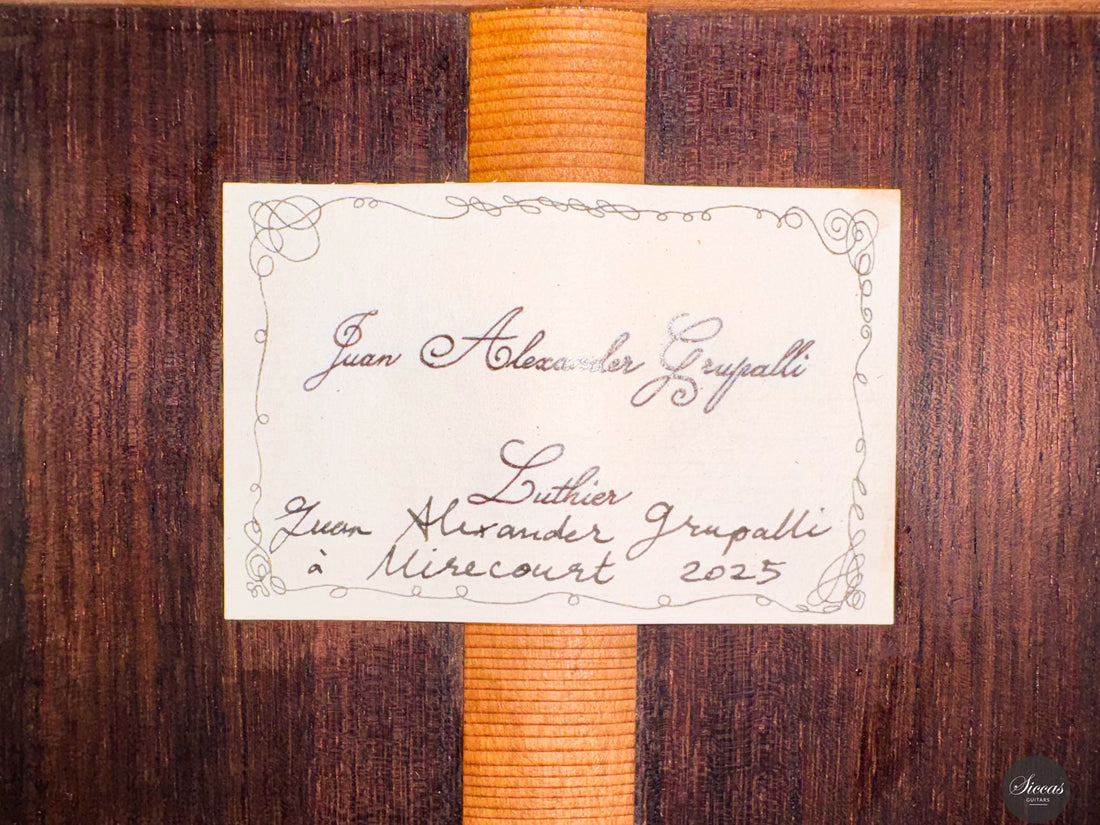 Juan Alexander Grupalli
Luthier
Juan Alexander Grupalli
à Mirecourt 2025
Siccas
GUITARS